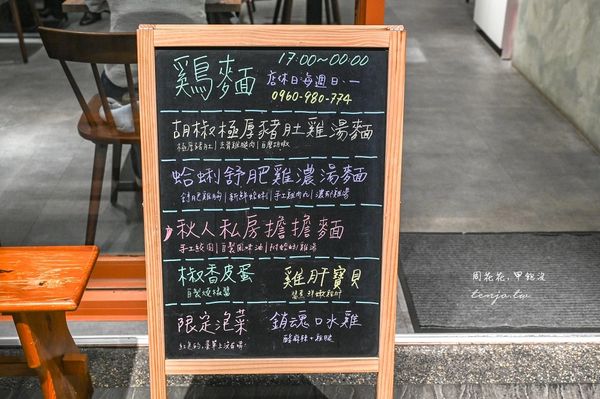 鷄麵
17:00~00:00
店休日:每週日、一
0960-980-774
胡椒極厚豬肚雞湯麵
極厚豬肚|去骨雞腿肉|自磨胡椒
蛤蜊舒肥雞濃湯麵
舒肥雞胸|新鮮蛤蜊|手工雞肉丸|濃郁雞湯
秋人私房擔擔麵
手工絞肉|自製風味油|附蛤蜊雞湯
椒香皮蛋
自製燒椒醬
雞肝寶貝
限定泡菜
銷魂口水雞
周花花,甲飽沒
tenjo.tw